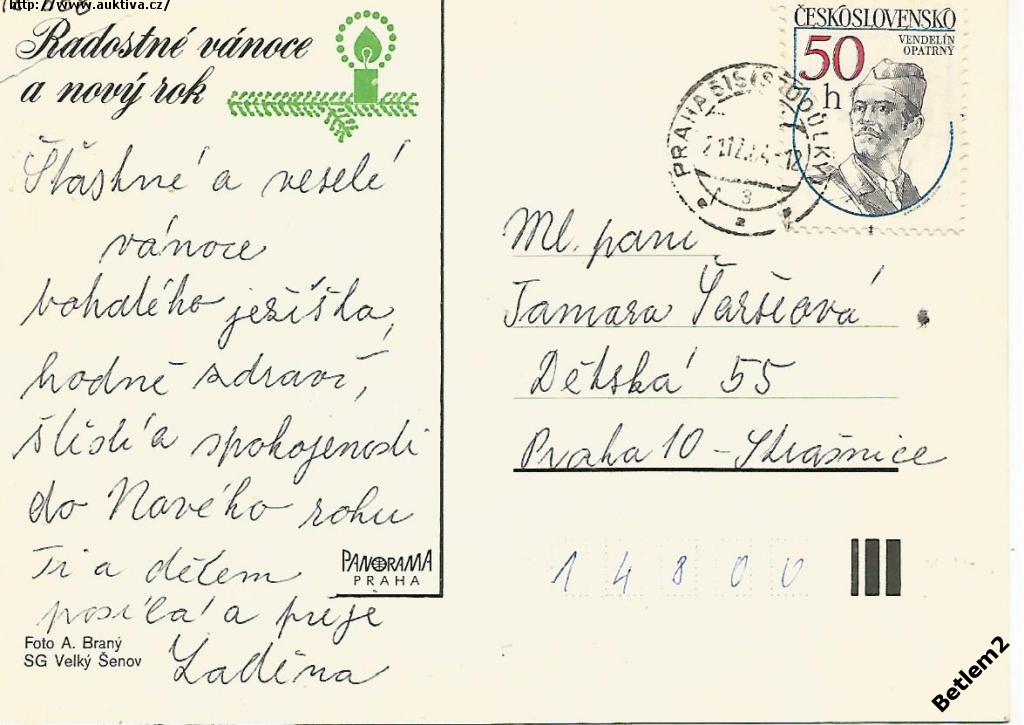 http://www.auktiva.cz/
Radostné vánoce
a nový rok
Šťastné a veselé
vánoce
bohatého ježíška,
hodně zdraví,
štěstí a spokojenosti
do Nového roku
Ti a dětem
posílá a přeje
Laděna
PANORAMA
PRAHA
Foto A. Braný
SG Velký Šenov
ČESKOSLOVENSKO
50
h
VENDELÍN
OPATRNÝ
PRAHA 515
3
Ml. paní
Tamara
Dětská 55
Praha 10 - Strašnice
14800
Betlem2